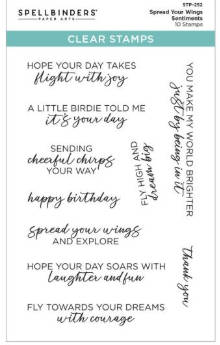 SPELLBINDERS®
PAPER ARTS
STP-252
Spread Your Wings
Sentiments
10 Stamps
CLEAR STAMPS
HOPE YOUR DAY TAKES
flight with joy
A LITTLE BIRDIE TOLD ME
it's your day
SENDING
cheerful chirps
YOUR WAY!
happy birthday
spread your wings
AND EXPLORE
HOPE YOUR DAY SOARS WITH
laughter and fun
FLY TOWARDS YOUR DREAMS
with courage
FLY HIGH AND
dream big
YOU MAKE MY WORLD BRIGHTER
just by being in it
thank you